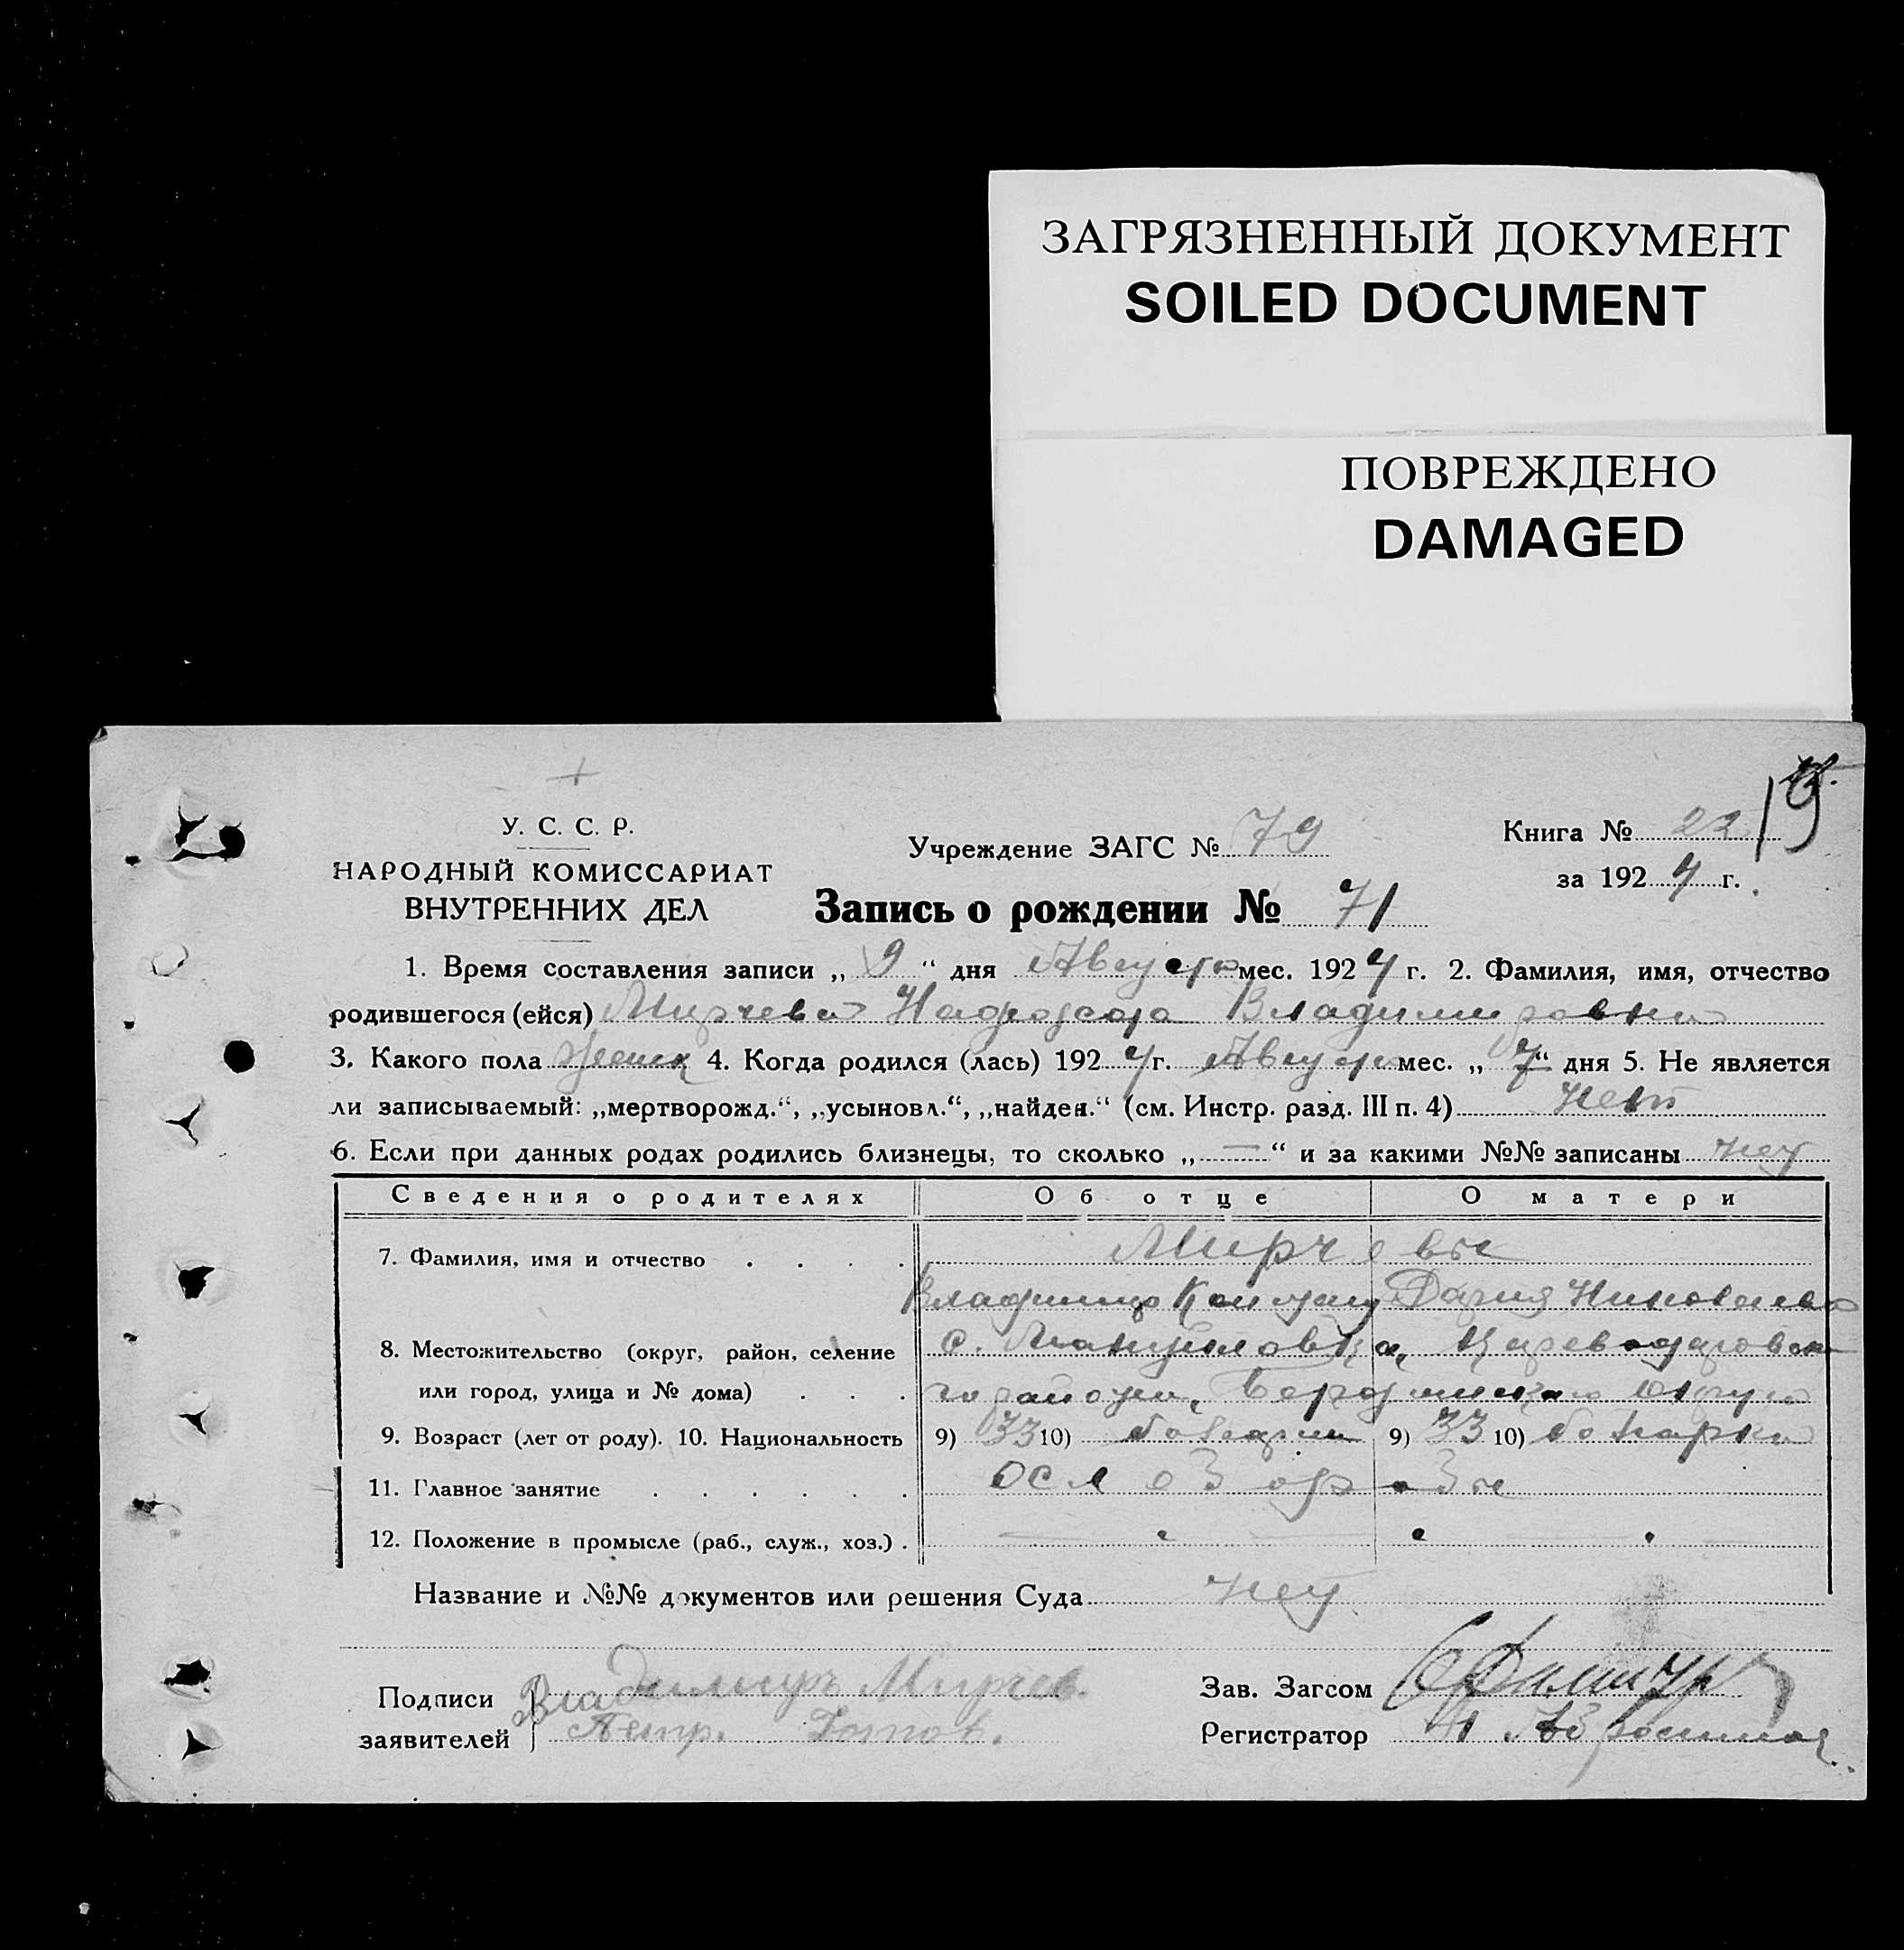 ЗАГРЯЗНЕННЫЙ ДОКУМЕНТ
SOILED DOCUMENT
ПОВРЕЖДЕНО
DAMAGED
19
У. С. С. Р.
НАРОДНЫЙ КОМИССАРИАТ
ВНУТРЕННИХ ДЕЛ
Учреждение ЗАГС № 79
Книга № 22
за 1924 г.
Запись о рождении № 71
1. Время составления записи „ 9 “ дня Августа мес. 1924 г. 2. Фамилия, имя, отчество
родившегося (ейся) Мирчева Владимировна
3. Какого пола женск 4. Когда родился (лась) 1924 г. Августа мес. „ 7 “ дня 5. Не является
ли записываемый: „мертворожд.“, „усыновл.“, „найден.“ (см. Инстр. разд. III п. 4) нет
6. Если при данных родах родились близнецы, то сколько „ — “ и за какими №№ записаны нет
Сведения о родителях Об отце О матери
7. Фамилия, имя и отчество Мирчевы
Владимир Дария Николаева
8. Местожительство (округ, район, селение с. Мануйловка,
или город, улица и № дома) го района, округа
9. Возраст (лет от роду). 10. Национальность 9) 33 10) болгарин 9) 33 10) болгарка
11. Главное занятие
12. Положение в промысле (раб., служ., хоз.)
Название и №№ документов или решения Суда нет
Подписи Владимиръ Мирчев.
заявителей Петр.
Зав. Загсом
Регистратор